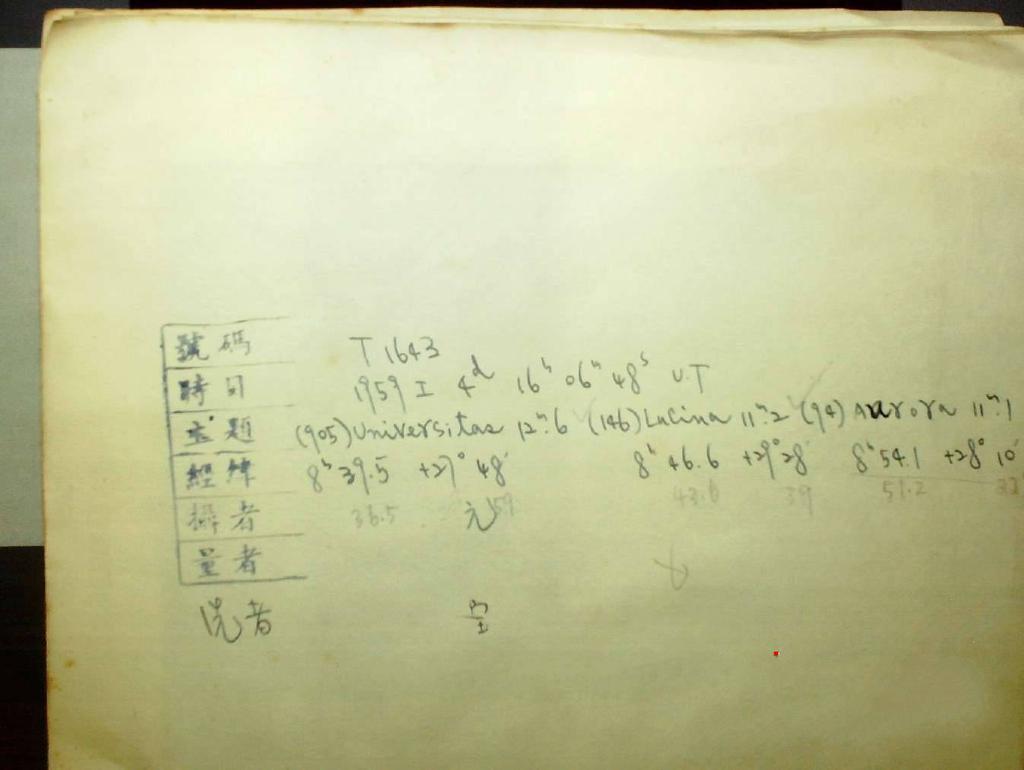 號碼 T 1643
時日 1959 I 4ᵈ 16ʰ 06ᵐ 48ˢ U.T
主題 (905) Universitas 12ᵐ.6 (146) Lucina 11ᵐ.2 (94) Aurora 11ᵐ.1
經緯 8ʰ 39.5 +27° 48′ 8ʰ 46.6 +29° 28′ 8ʰ 54.1 +28° 10′
攝者 36.5 元 59 43.6 39 51.2
量者
洗者